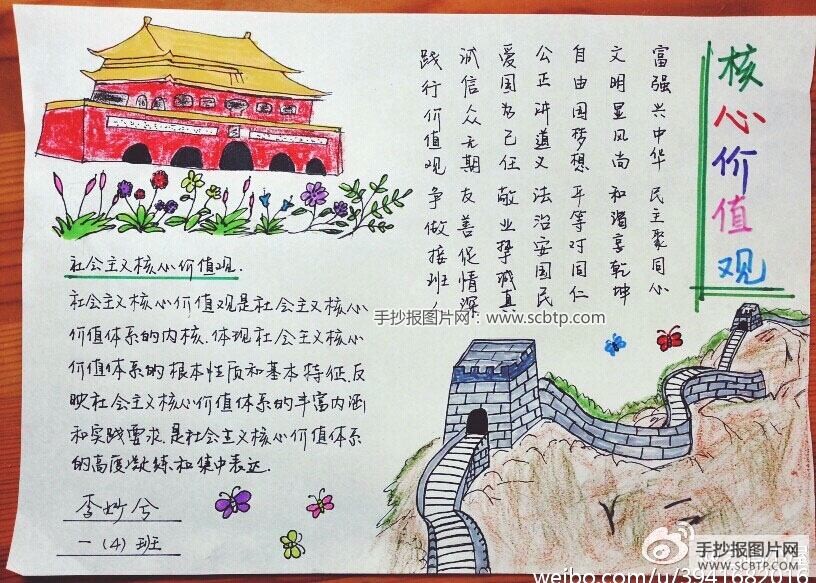 核心价值观
富强兴中华 民主聚同心
文明显风尚 和谐享乾坤
自由国梦想 平等对同仁
公正讲道义 法治安国民
爱国为己任 敬业挚职真
诚信众无期 友善促情深
践行价值观 争做接班人
社会主义核心价值观.
社会主义核心价值观是社会主义核心
价值体系的内核.体现社会主义核心
价值体系的根本性质和基本特征.反
映社会主义核心价值体系的丰富内涵
和实践要求.是社会主义核心价值体系
的高度凝练和集中表达.
李妙兮
一(4)班
手抄报图片网:www.scbtp.com
手抄报图片网
WWW.SCBTP.COM
weibo.com/u/3941682016